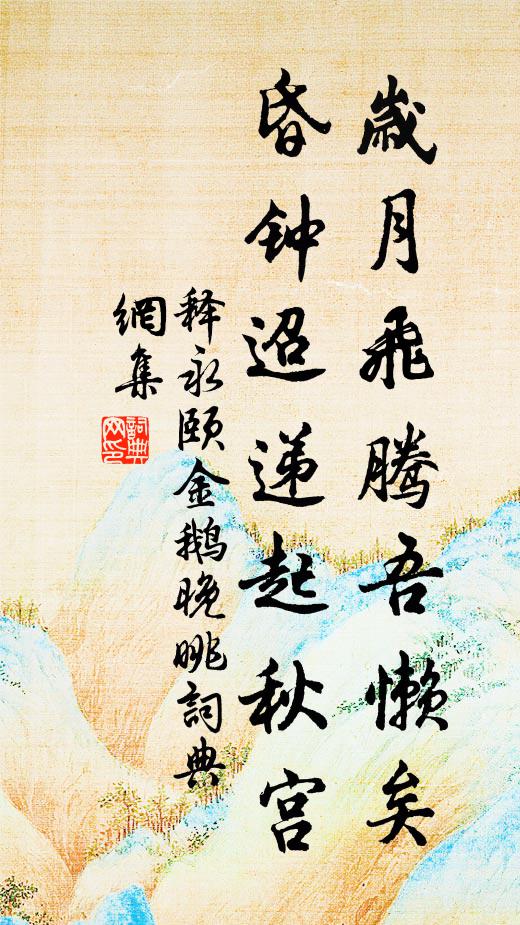 歲月飛騰吾懒矣
昏钟迢递起秋宫
释永颐金鹅晚眺詞典
網集
詞典
网印